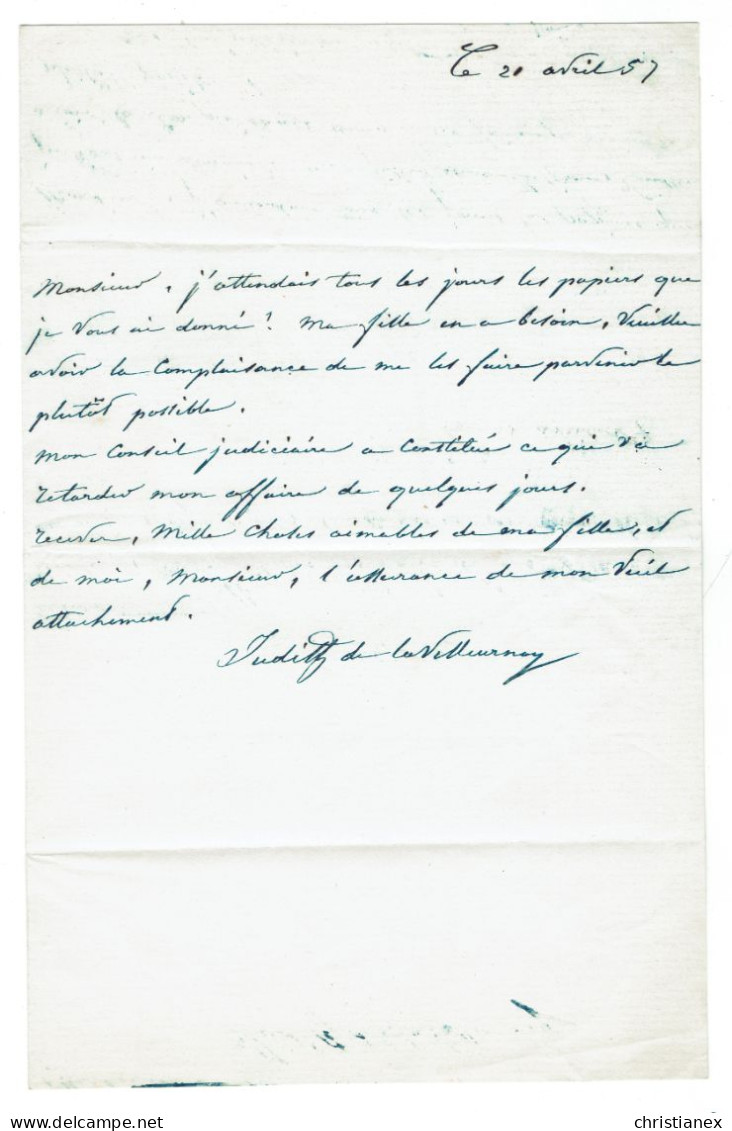 Ce 21 avril 57
Monsieur, j'attendais tous les jours les papiers que
je vous ai donné! Ma fille en a besoin, Veuillez
avoir la Complaisance de me les faire parvenir le
plutôt possible.
Mon Conseil judiciaire a Constitué ce qui va
retarder mon affaire de quelques jours.
recevez, Mille Choses aimables de ma fille, et
de moi, Monsieur, l'assurance de mon Vieil
attachement.
Judith de la Villeurnoy
christianex